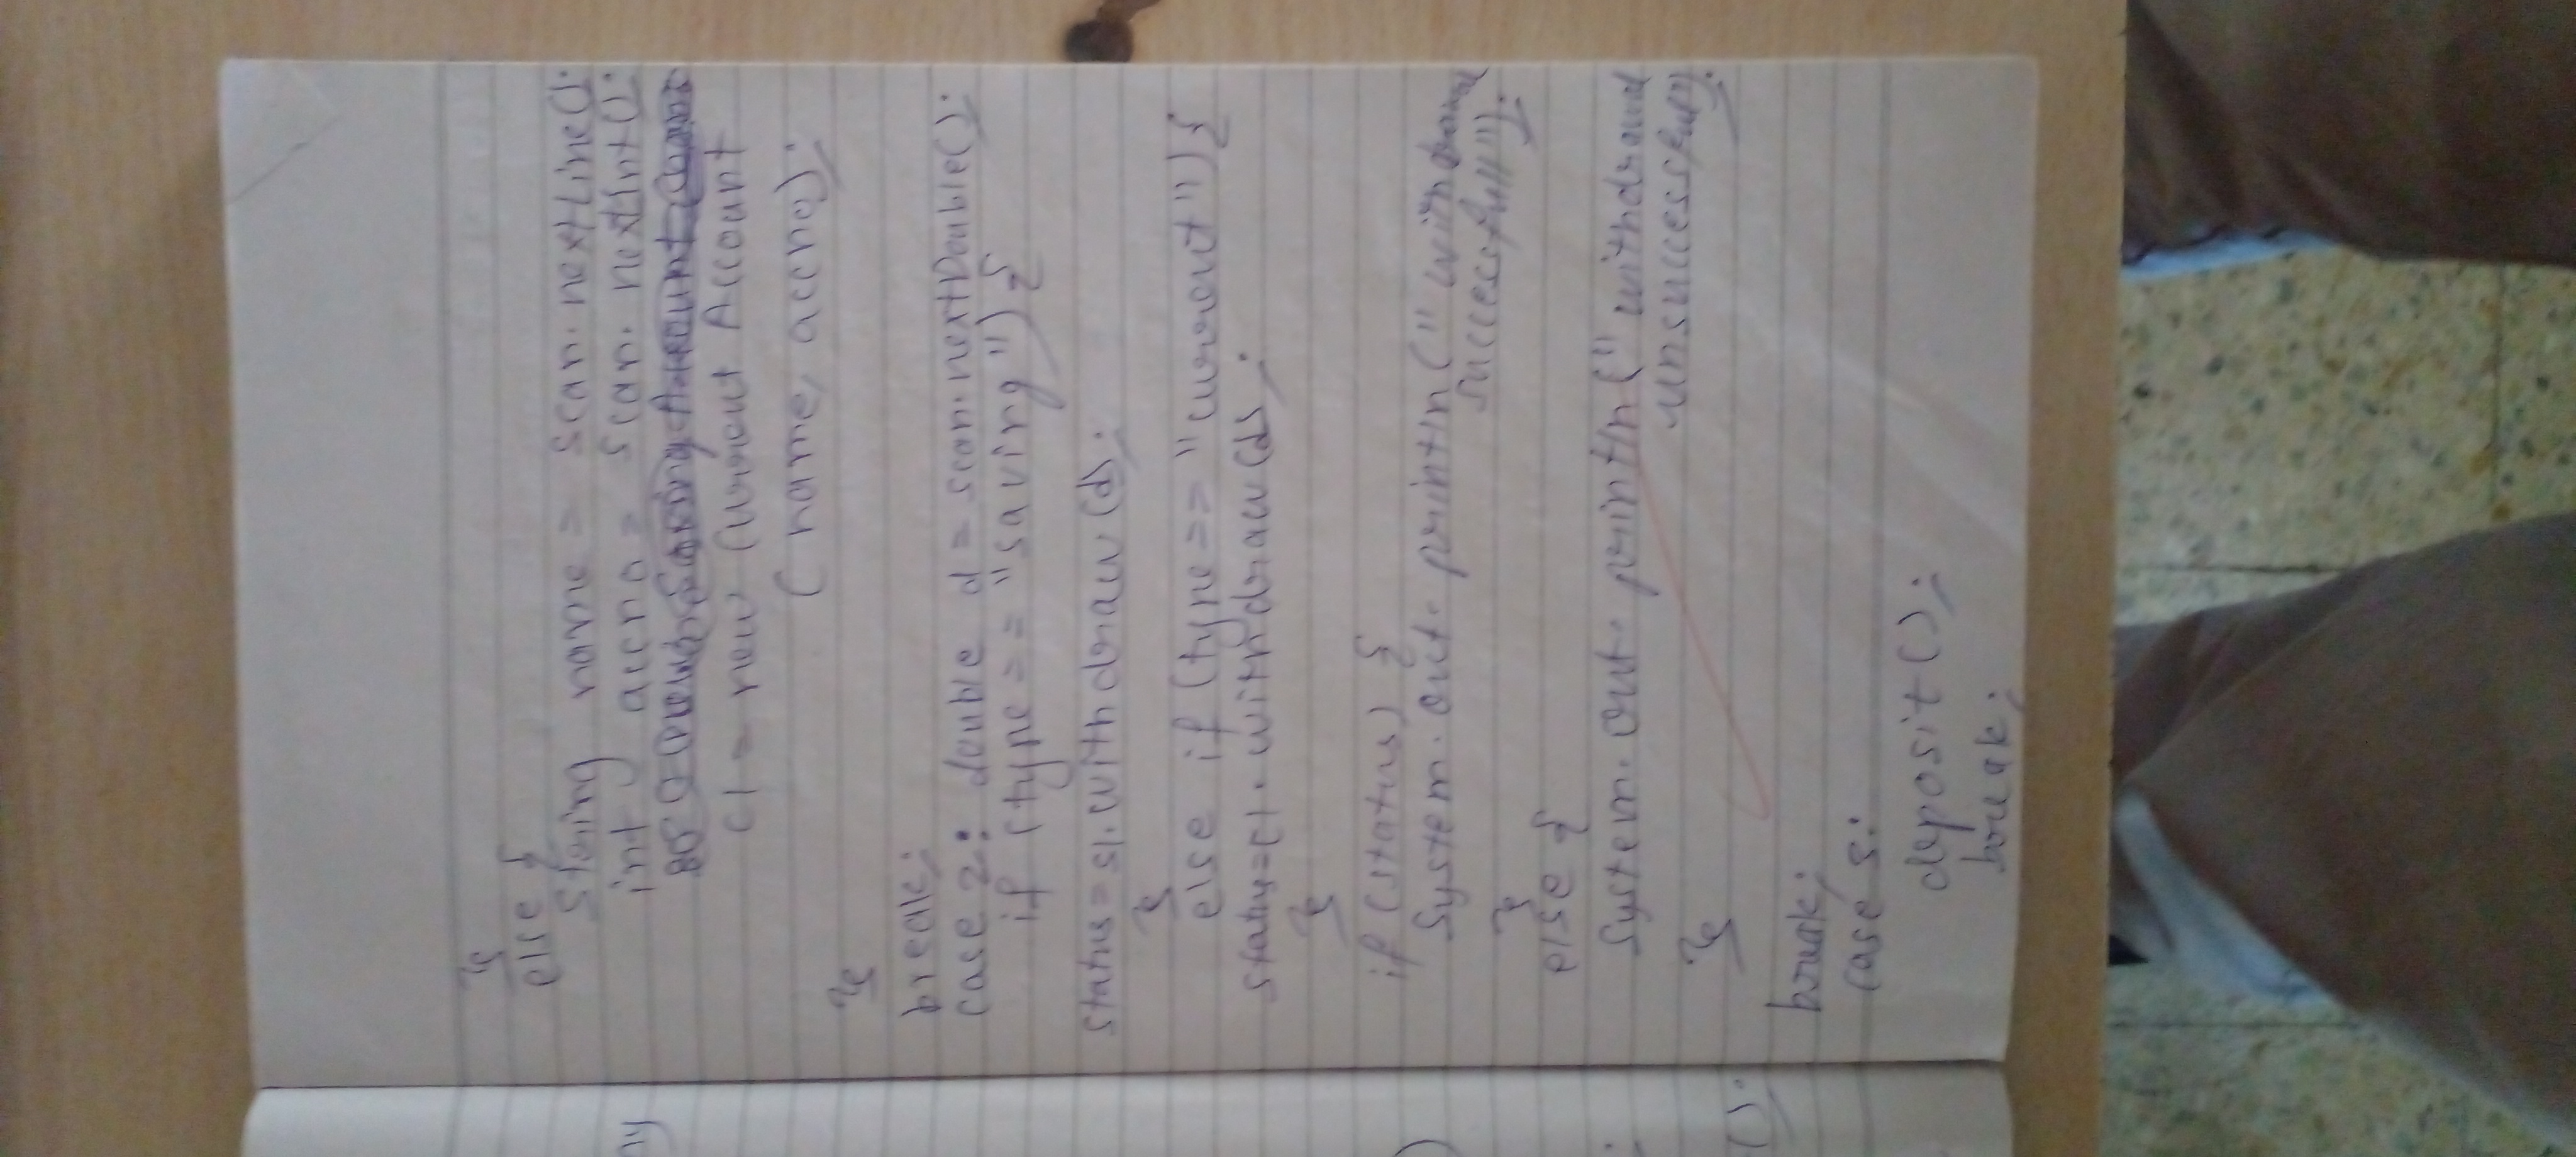 }
else {
String name = scan.nextLine();
int accno = scan.nextInt();
c1 = new Current Account
(name, accno);
}
break;
case 2: double d = scan.nextDouble();
if (type == "saving") {
status = s1.withdraw(d);
}
else if (type == "current") {
status = c1.withdraw(d);
}
if (status) {
System.out.println("withdraw
successfull");
}
else {
System.out.println("withdrawal
unsuccessfull");
}
break;
case 3:
deposit();
break;